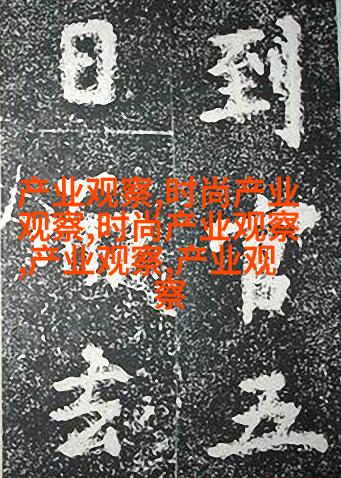 产业观察,时尚产业
观察,时尚产业观察
,产业观察,产业观
察
到官五
日去